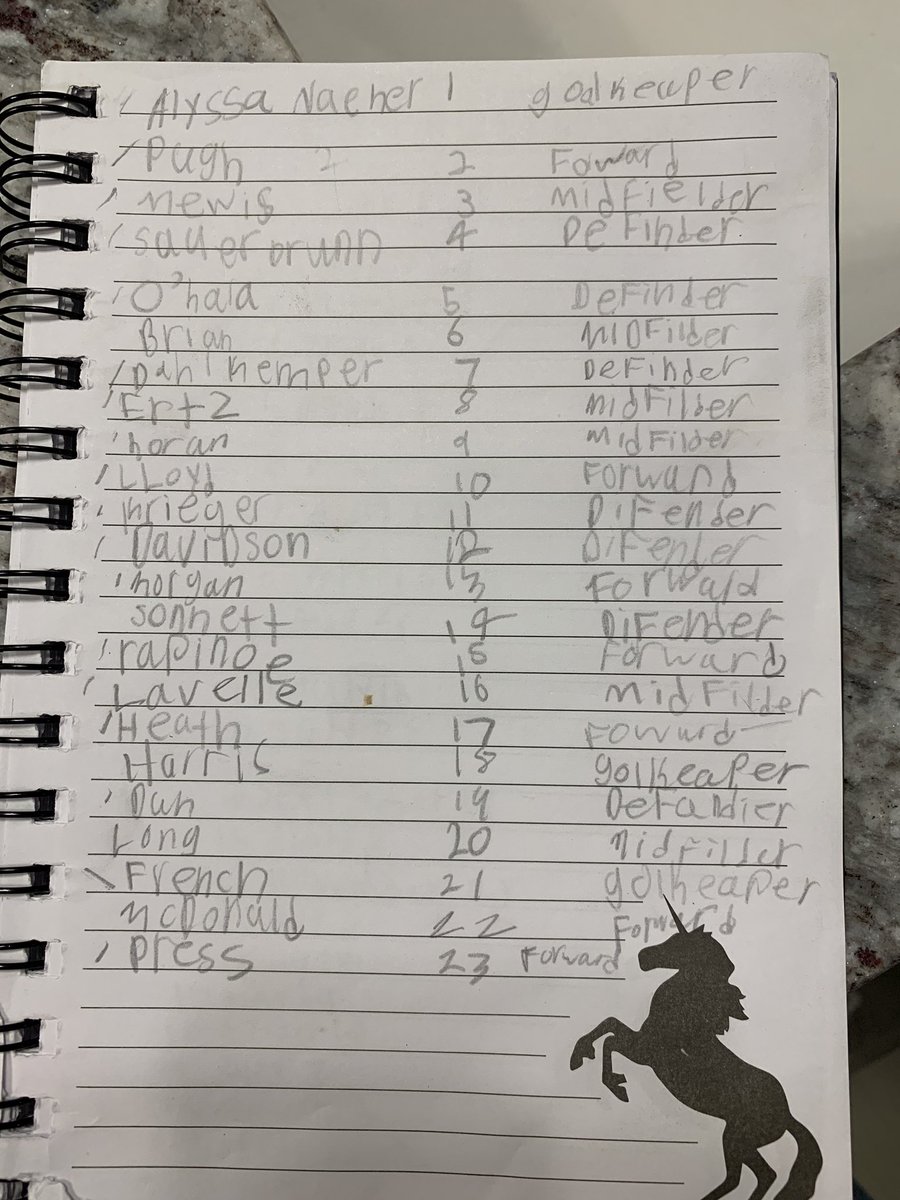 Alyssa Naeher 1 goalkeaper
Pugh 2 2 Foward
mewis 3 midfielder
sauerbrunn 4 DeFinder
O'hara 5 DeFinder
Brian 6 MIDFilder
Dahlkemper 7 DeFinder
Ertz 8 midFilder
horan 9 midFilder
LLoyd 10 Forward
Krieger 11 DiFender
Davidson 12 DiFender
morgan 13 Forward
sonnett 14 DiFender
rapinoe 15 Forward
Lavelle 16 midFilder
Heath 17 Foward
Harris 18 golkeaper
Dun 19 Defandier
Long 20 midFilder
French 21 golkeaper
McDonald 22 Forward
press 23 Forward